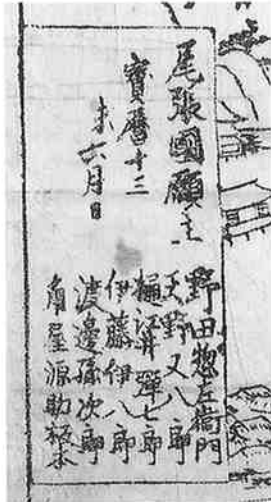 尾張國願主
寳暦十三
未六月日
野田惣左衛門
天野又八郎
樋江井彈七郎
伊藤伊八郎
渡邉孫次郎
角屋源助板木